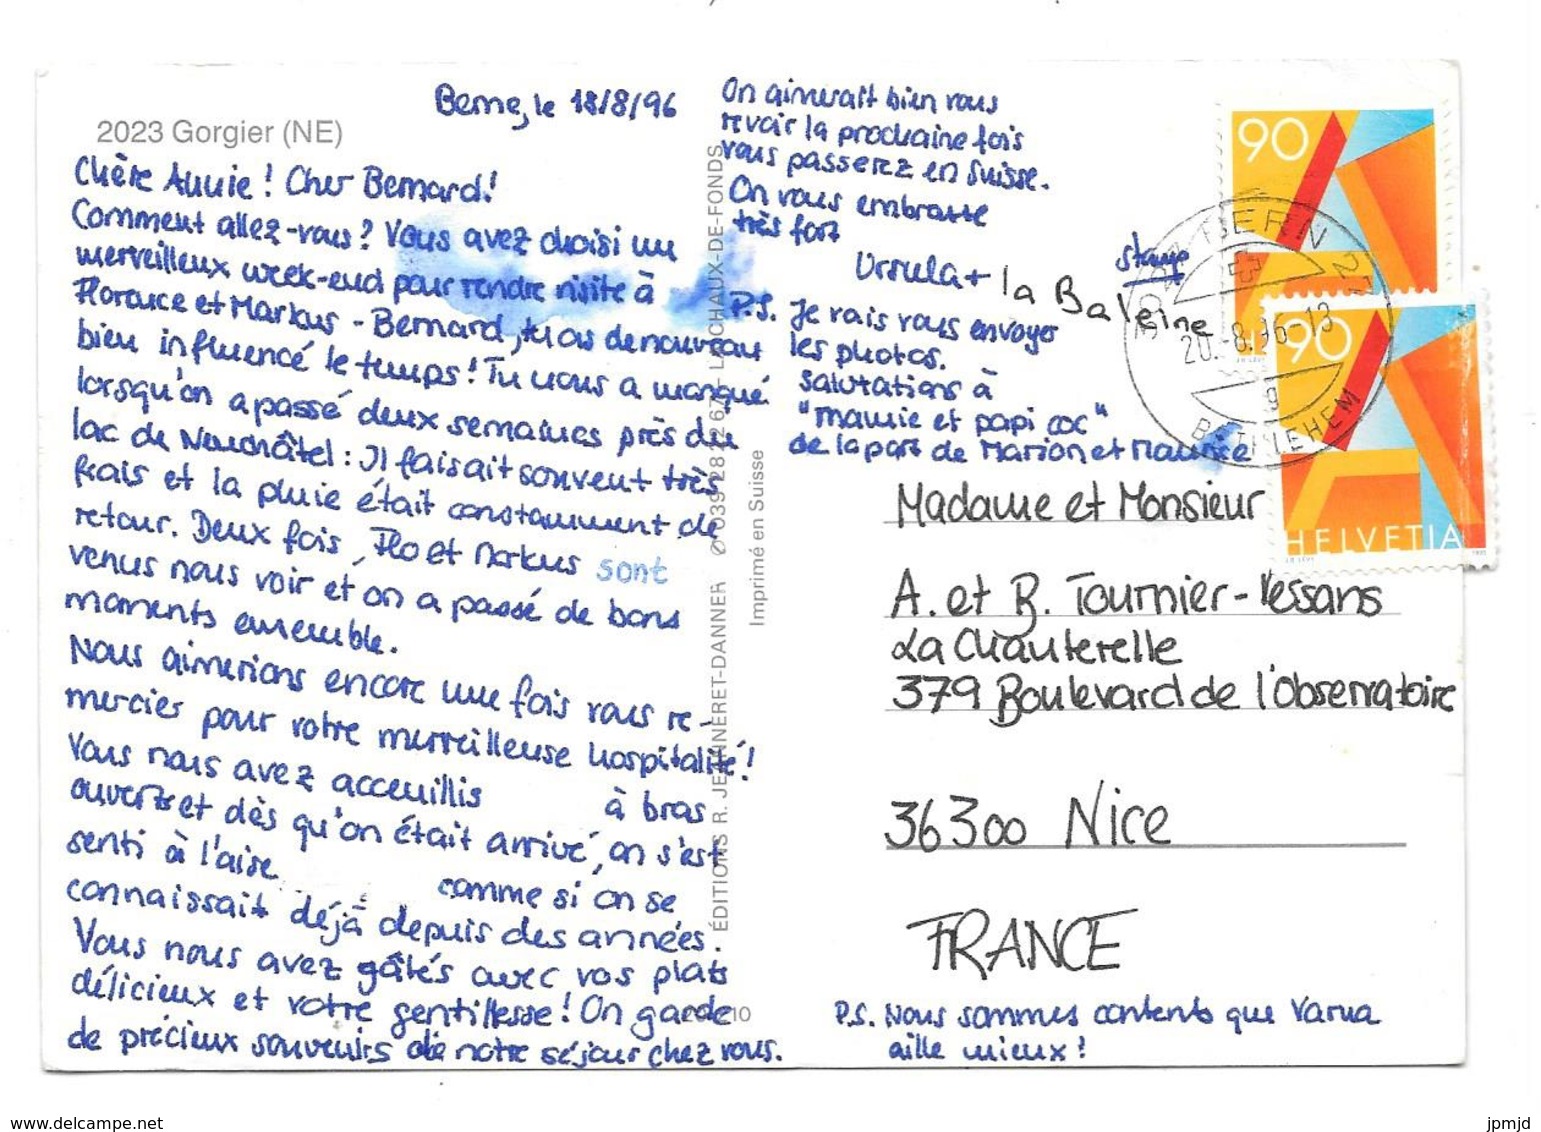 Berne, le 18/8/96
2023 Gorgier (NE)
Chère Annie! Cher Bernard!
Comment allez-vous? Vous avez choisi un
merveilleux week-end pour rendre visite à
Florence et Markus - Bernard, tu as de nouveau
bien influencé le temps! Tu nous a manqué
lorsqu'on a passé deux semaines près du
lac de Neuchâtel: Il faisait souvent très
frais et la pluie était constamment de
retour. Deux fois, Flo et Markus sont
venus nous voir et on a passé de bons
moments ensemble.
Nous aimerions encore une fois vous re-
mercier pour votre merveilleuse hospitalité!
Vous nous avez acceuillis à bras
ouverts et dès qu'on était arrivé, on s'est
senti à l'aise comme si on se
connaissait déjà depuis des années.
Vous nous avez gâtés avec vos plats
délicieux et votre gentillesse! On garde
de précieux souvenirs de notre séjour chez vous.
On aimerait bien vous
revoir la prochaine fois
vous passerez en Suisse.
On vous embrasse
très fort
Ursula + la Baleine
P.S. Je vais vous envoyer
les photos.
salutations à
"mamie et papi coc"
de la part de Marion et Maurice
ÉDITIONS R. JEANNERET-DANNER ✆ 039 28 22 67 - LA CHAUX-DE-FONDS
Imprimé en Suisse
10
90
90
HELVETIA
BERN
20.-8.96-13
g
BETHLEHEM
Madame et Monsieur
A. et B. Tournier-Vessans
La Chanterelle
379 Boulevard de l'Observatoire
36300 Nice
FRANCE
P.S. Nous sommes contents que Varua
aille mieux!
www.delcampe.net
jpmjd